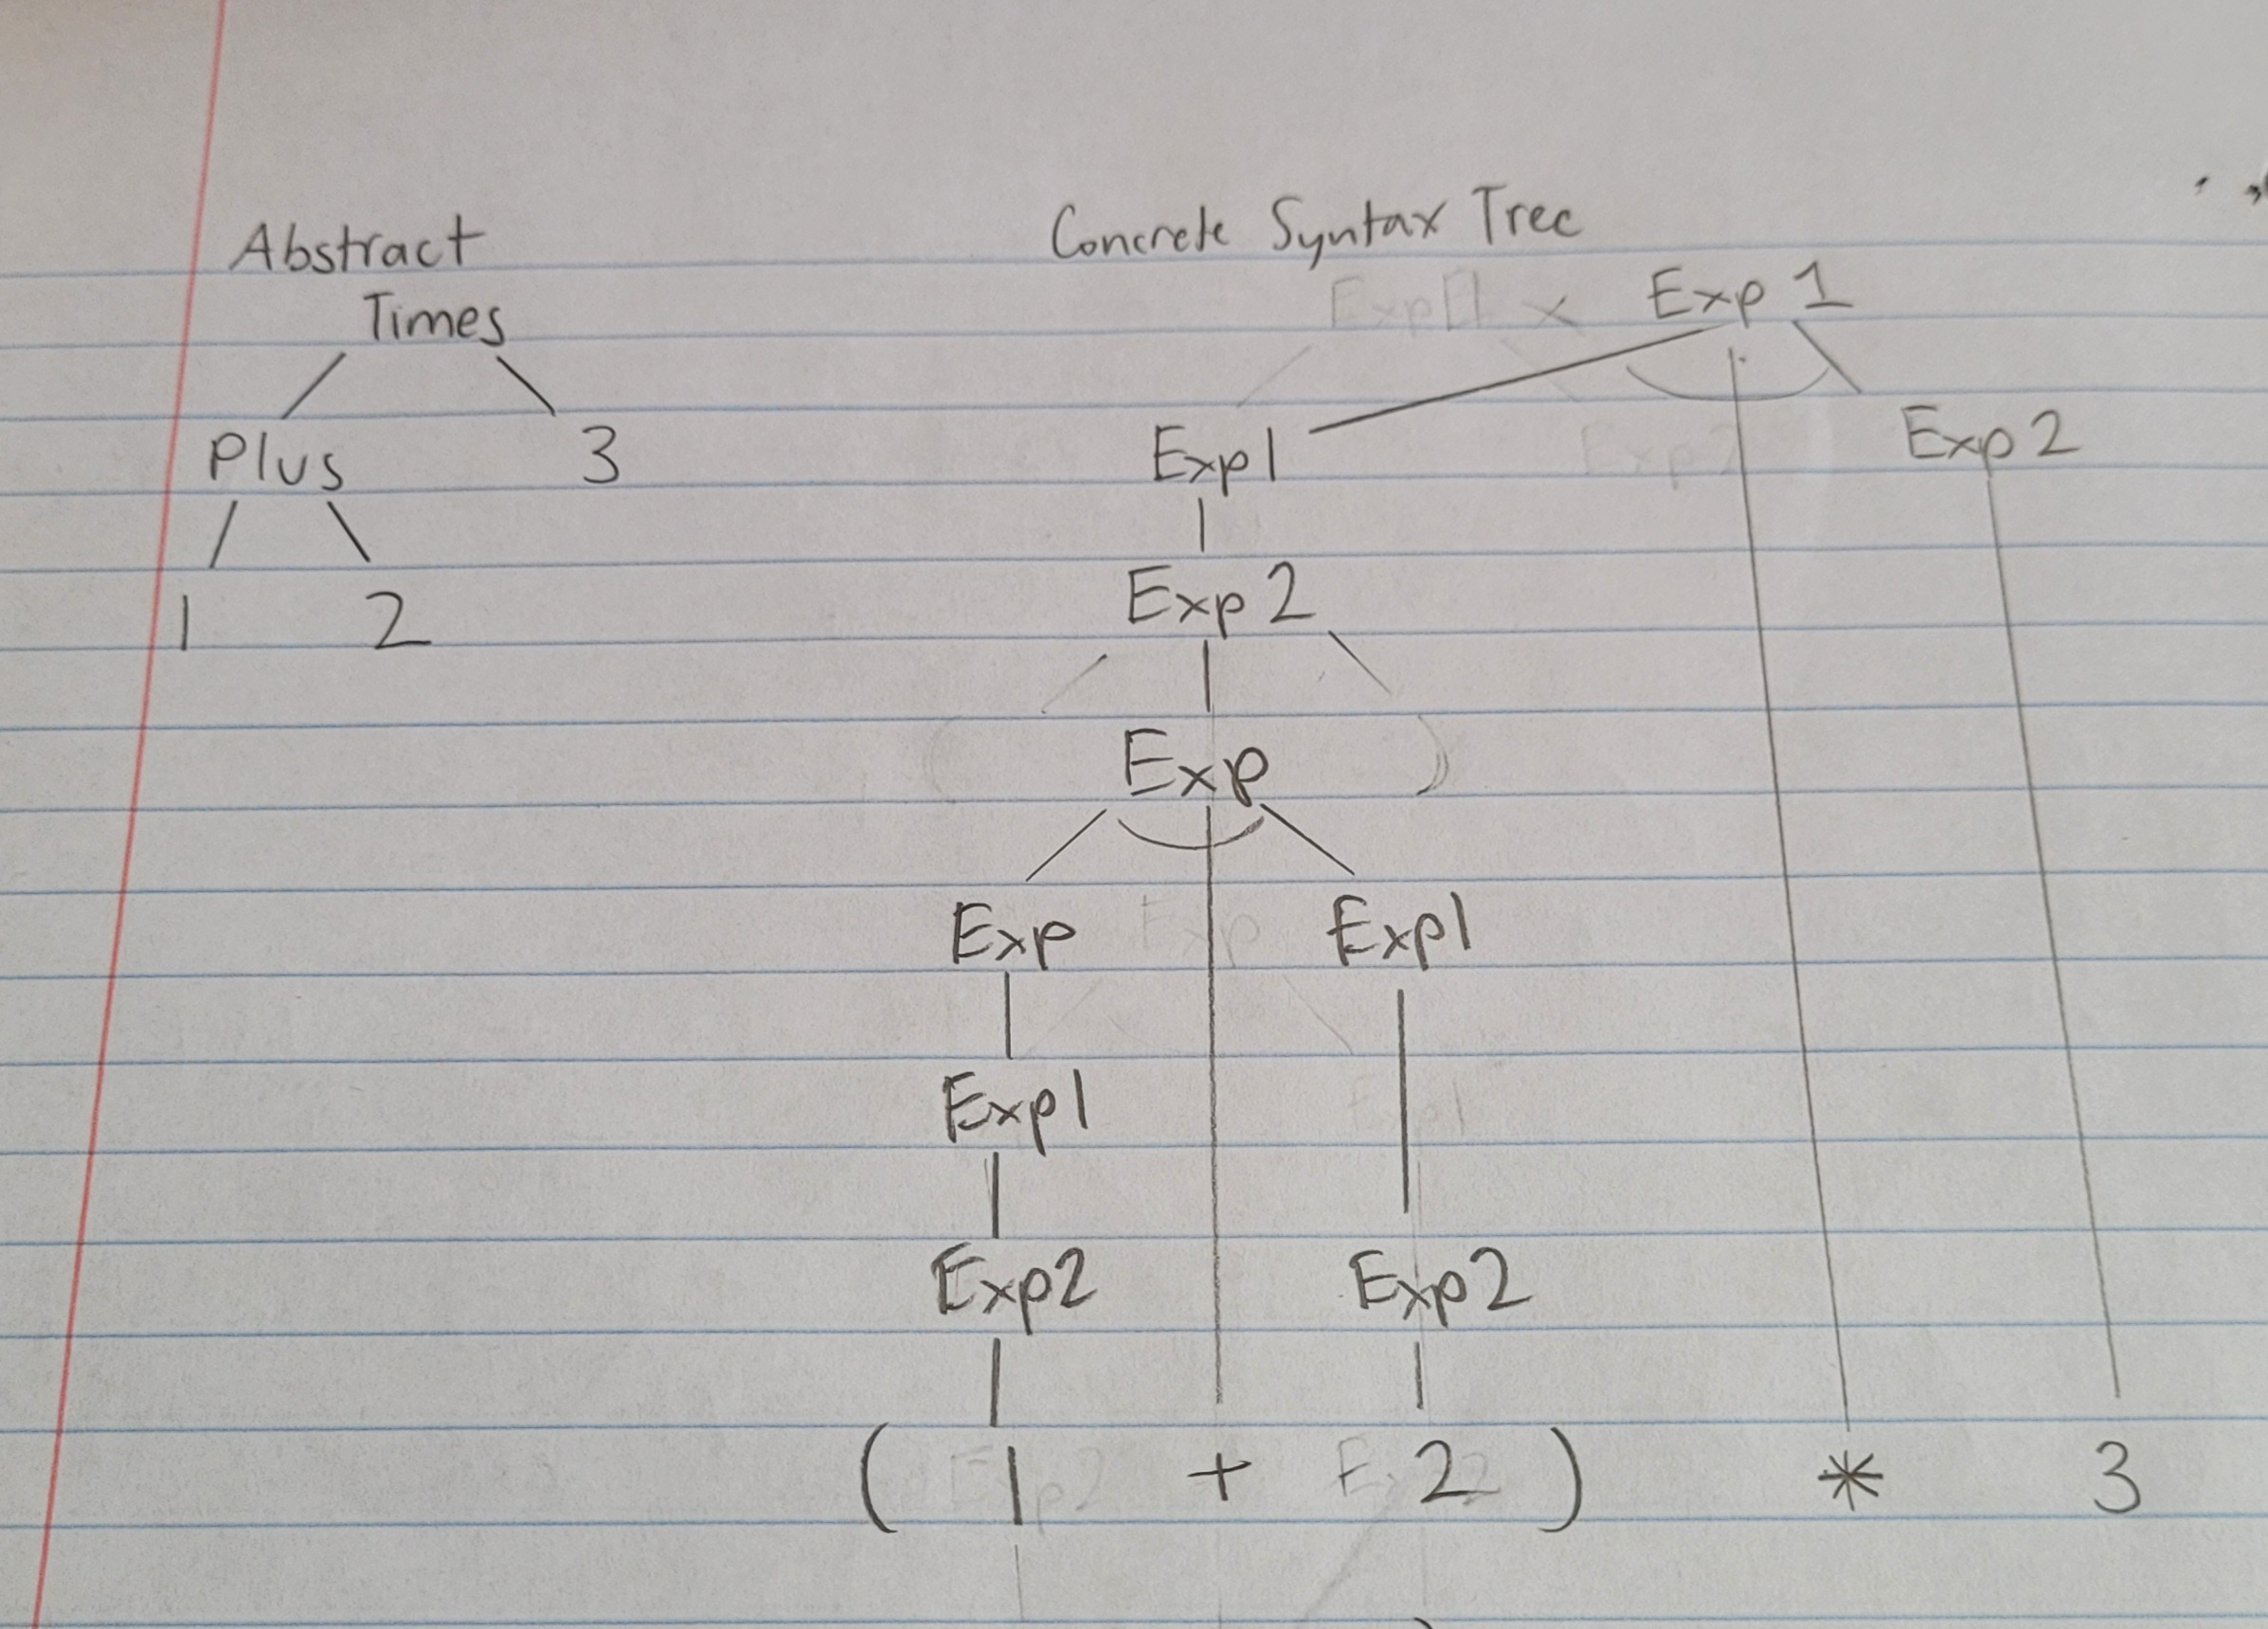 Abstract
Times
Plus 3
1 2
Concrete Syntax Tree
Exp 1
Exp1 Exp2
Exp2
Exp
Exp Exp1
Exp1
Exp2 Exp2
( 1 + 2 ) * 3